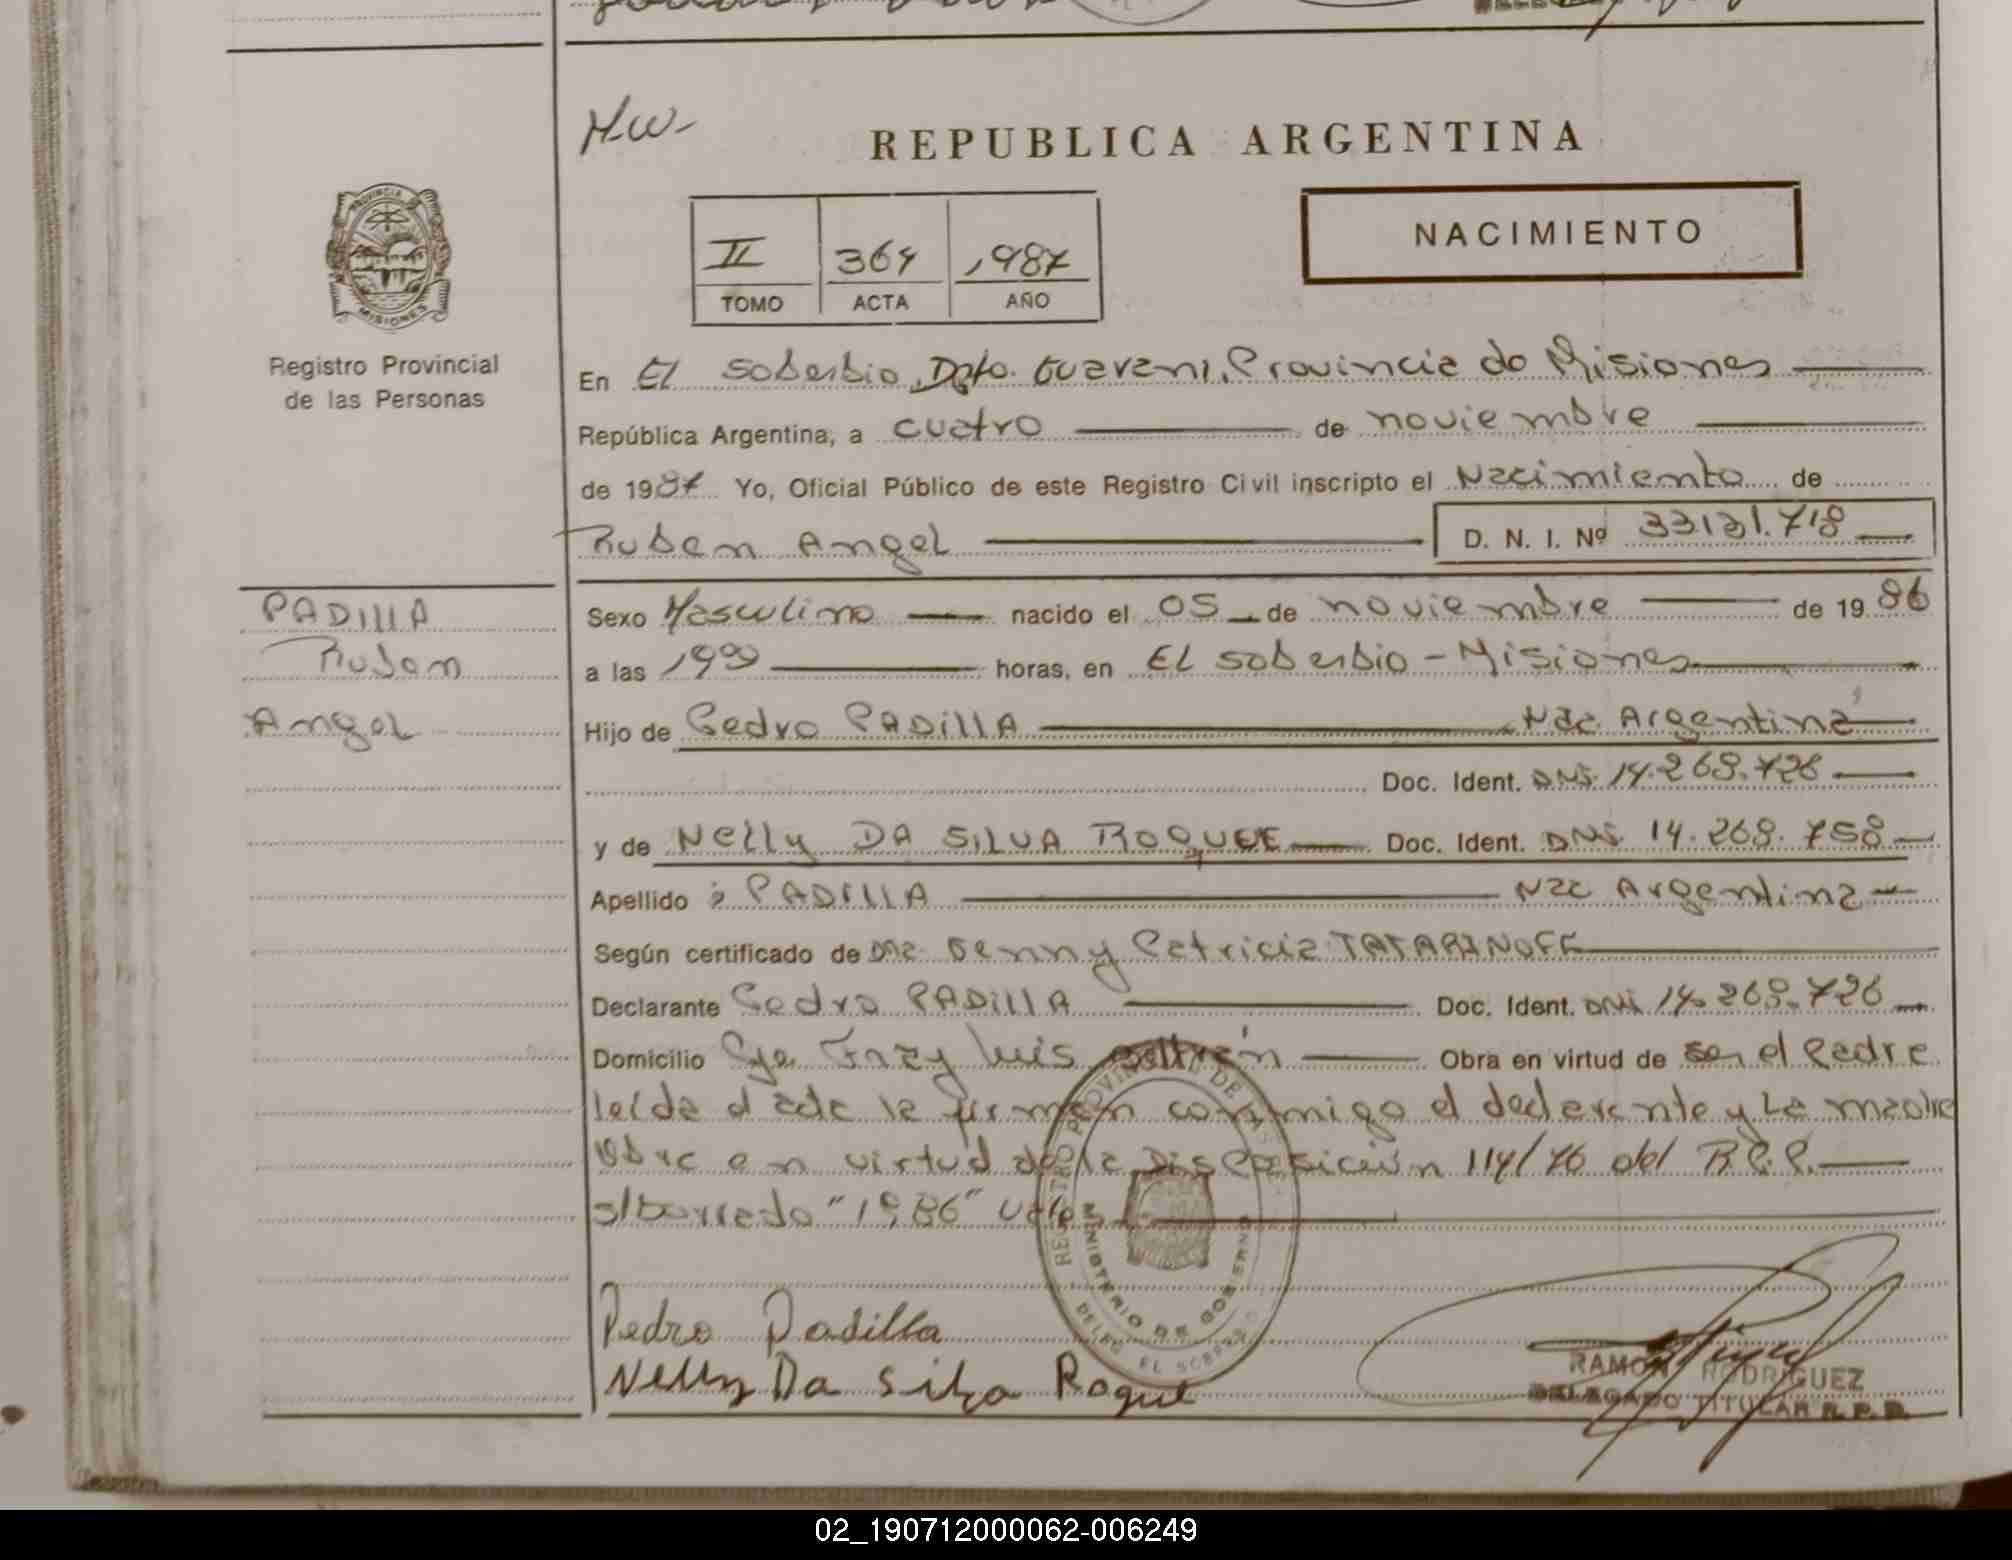 H-W-
REPUBLICA ARGENTINA
NACIMIENTO
II 364 1987
TOMO ACTA AÑO
PROVINCIA
MISIONES
Registro Provincial
de las Personas
En El Soberbio, Dpto. Guarani, Provincia de Misiones
República Argentina, a cuatro de noviembre
de 1987 Yo, Oficial Público de este Registro Civil inscripto el Nacimiento de
Ruben Angel D. N. I. Nº 33.131.718
PADILLA
Ruben
Angel
Sexo Masculino nacido el 05 de noviembre de 1986
a las 19 horas, en El Soberbio - Misiones
Hijo de Pedro PADILLA Nac Argentina
Doc. Ident. DNI. 14.268.726
y de Nelly DA SILVA ROQUE Doc. Ident. DNI. 14.268.758
Apellido : PADILLA Nac Argentina
Según certificado de Dra. Genny Patricia TATARINOFF
Declarante Pedro PADILLA Doc. Ident. DNI 14.268.726
Domicilio Pje Fray Luis Beltrán Obra en virtud de ser el Padre
leída el acta la firman conmigo el declarante y La madre
Obra en virtud de la Disposición 114/76 del R.P.P.
s/borrado "1986" Vale
REGISTRO PROVINCIAL DE LAS
MINISTERIO DE GOBIERNO
DELEG EL SOBERBIO
Pedro Padilla
Nelly Da Silva Roque
RAMON RODRIGUEZ
DELEGADO TITULAR R. P. P.
02_190712000062-006249